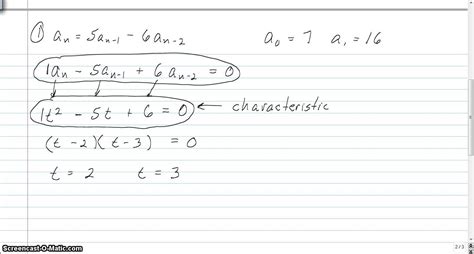 ① aₙ = 5aₙ₋₁ - 6aₙ₋₂   a₀ = 7   a₁ = 16
1aₙ - 5aₙ₋₁ + 6aₙ₋₂ = 0
1t² - 5t + 6 = 0 ← characteristic
(t - 2)(t - 3) = 0
t = 2   t = 3
2 / 3
Screencast-O-Matic.com